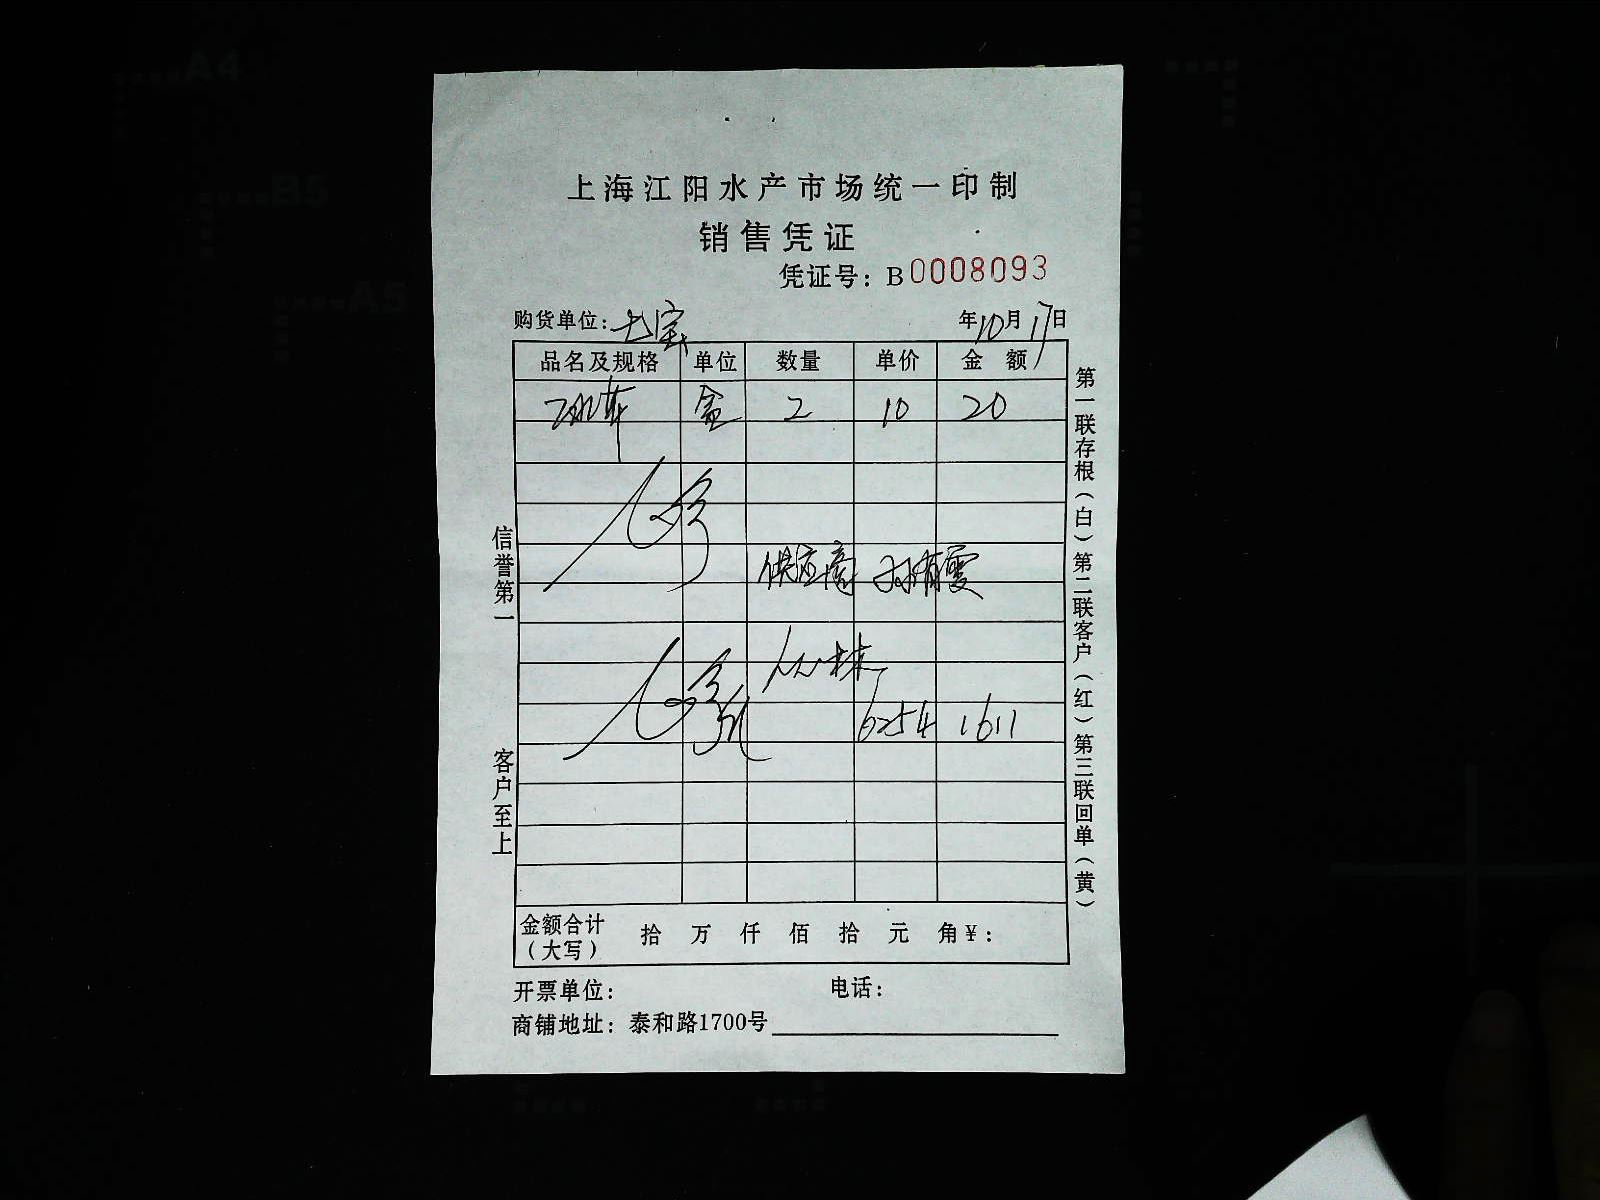 上海江阳水产市场统一印制
销售凭证
凭证号：B0008093
购货单位： 年10月17日
品名及规格 单位 数量 单价 金额
盒 2 10 20
供应商
6254 1611
金额合计（大写） 拾 万 仟 佰 拾 元 角 ¥：
开票单位： 电话：
商铺地址：泰和路1700号
信誉第一 客户至上
第一联存根（白）第二联客户（红）第三联回单（黄）
A4
B5
A5